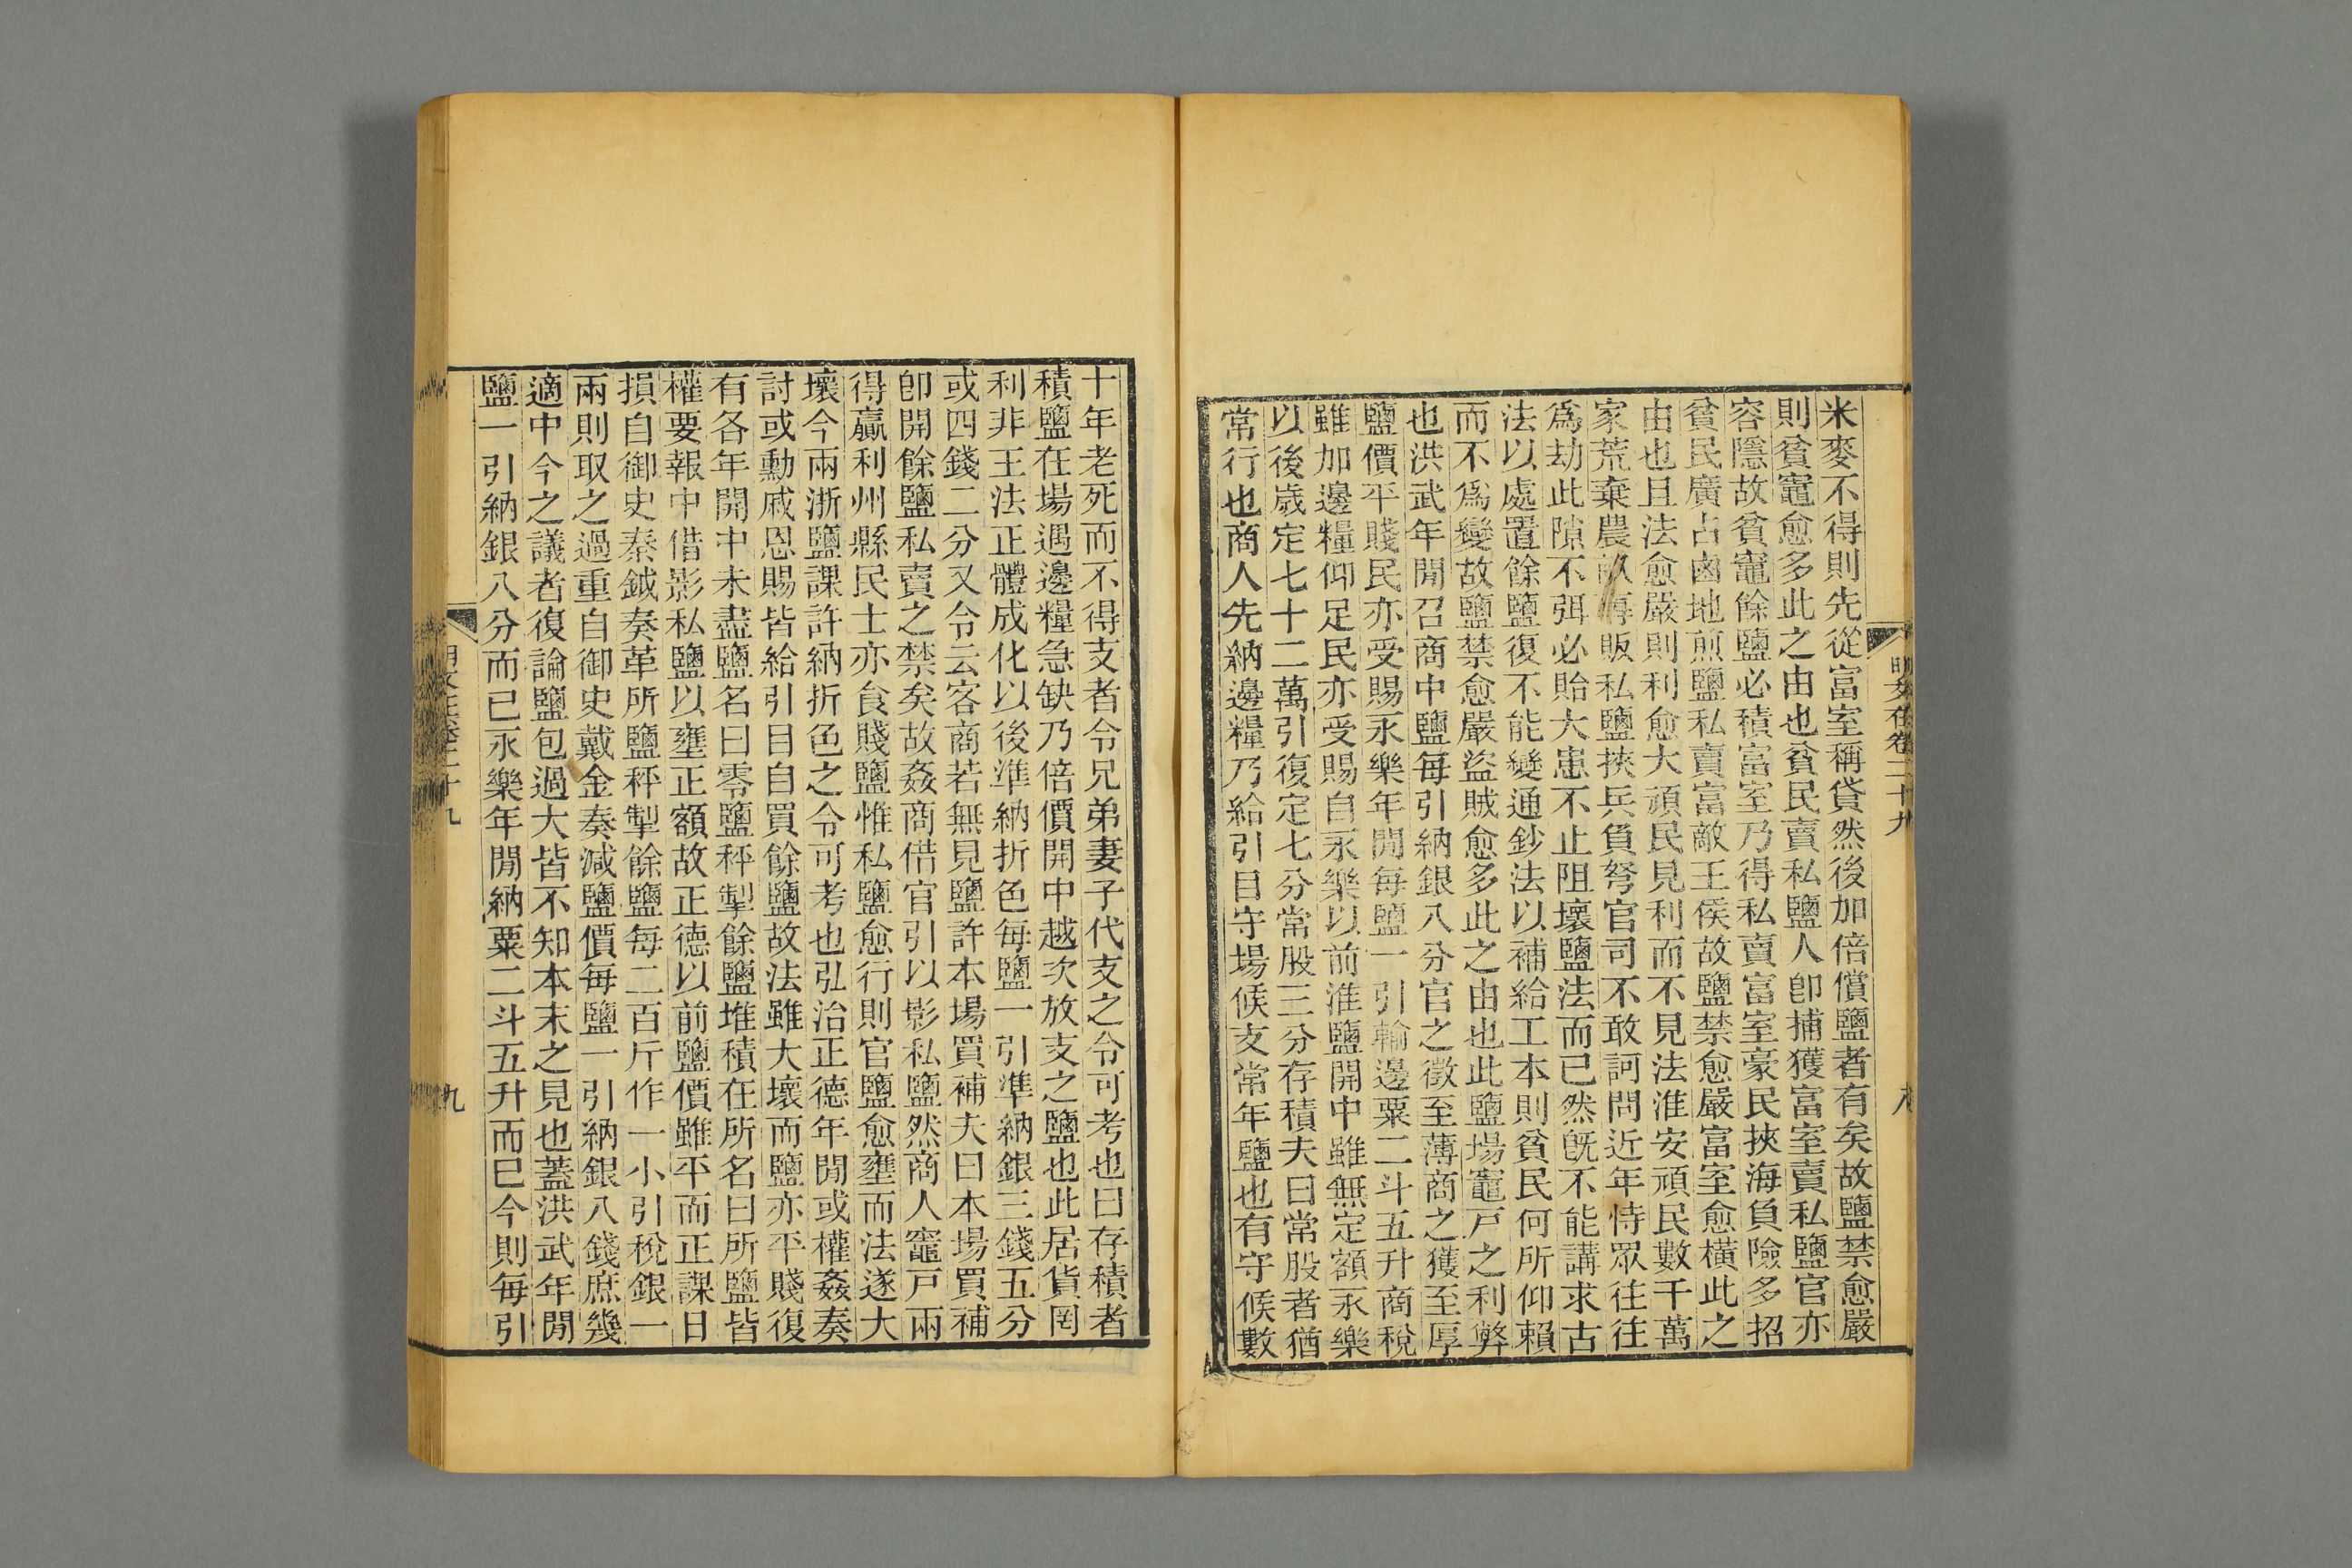 米麥不得則先從富室稱貸然後加倍償鹽者有矣故鹽禁愈嚴
則貧竈愈多此之由也貧民賣私鹽人卽捕獲富室賣私鹽官亦
容隱故貧竈餘鹽必積富室乃得私賣富室豪民挾海負險多招
貧民廣占鹵地煎鹽私賣富敵王侯故鹽禁愈嚴富室愈橫此之
由也且法愈嚴則利愈大頑民見利而不見法淮安頑民數千萬
家荒棄農畝專販私鹽挾兵負弩官司不敢訶問近年恃眾往往
爲劫此隙不弭必貽大患不止阻壞鹽法而已然旣不能講求古
法以處置餘鹽復不能變通鈔法以補給工本則貧民何所仰賴
而不爲變故鹽禁愈嚴盜賊愈多此之由也此鹽場竈戸之利弊
也洪武年閒召商中鹽每引納銀八分官之徵至薄商之獲至厚
鹽價平賤民亦受賜永樂年閒每鹽一引輸邊粟二斗五升商稅
雖加邊糧仰足民亦受賜自永樂以前淮鹽開中雖無定額永樂
以後歲定七十二萬引復定七分常股三分存積夫曰常股者猶
常行也商人先納邊糧乃給引目守場候支常年鹽也有守候數
明文在卷二十九
八
十年老死而不得支者令兄弟妻子代支之令可考也曰存積者
積鹽在場遇邊糧急缺乃倍價開中越次放支之鹽也此居貨罔
利非王法正體成化以後準納折色每鹽一引準納銀三錢五分
或四錢二分又令云客商若無見鹽許本場買補夫曰本場買補
卽開餘鹽私賣之禁矣故姦商借官引以影私鹽然商人竈戸兩
得贏利州縣民士亦食賤鹽惟私鹽愈行則官鹽愈壅而法遂大
壞今兩浙鹽課許納折色之令可考也弘治正德年閒或權姦奏
討或勳戚恩賜皆給引目自買餘鹽故法雖大壞而鹽亦平賤復
有各年開中未盡鹽名曰零鹽秤掣餘鹽堆積在所名曰所鹽皆
權要報中借影私鹽以壅正額故正德以前鹽價雖平而正課日
損自御史秦鉞奏革所鹽秤掣餘鹽每二百斤作一小引稅銀一
兩則取之過重自御史戴金奏減鹽價每鹽一引納銀八錢庶幾
適中今之議者復論鹽包過大皆不知本末之見也蓋洪武年閒
鹽一引納銀八分而已永樂年閒納粟二斗五升而已今則每引
明文在卷二十九
九